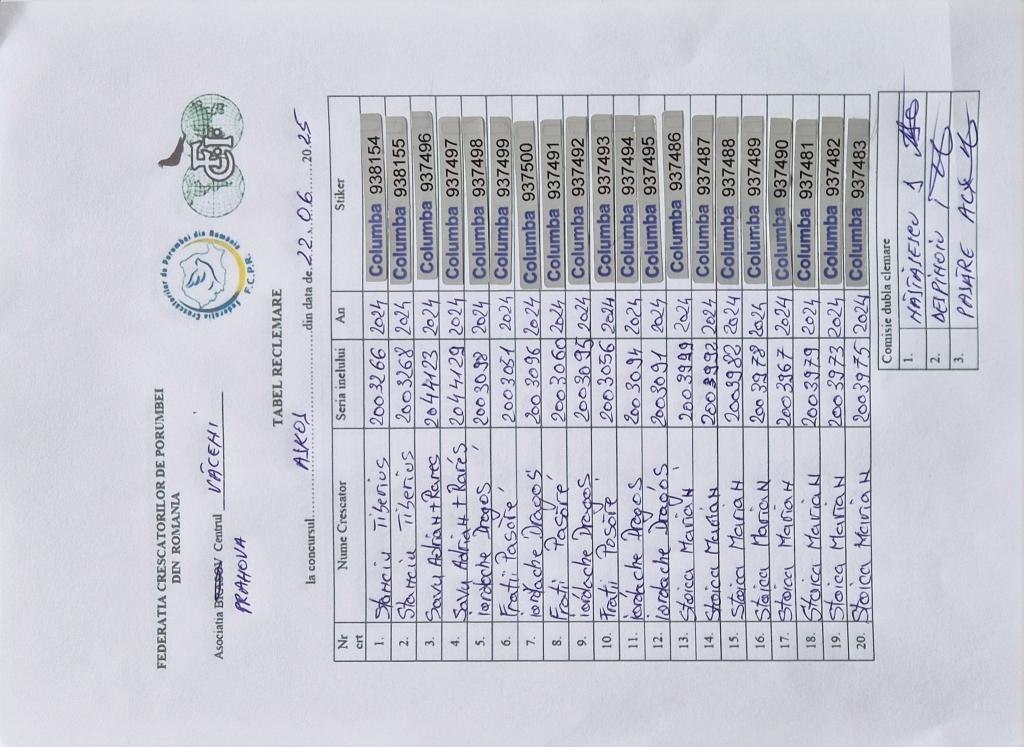 FEDERATIA CRESCATORILOR DE PORUMBEI
DIN ROMANIA
Federatia Crescatorilor de Porumbei din România
F.C.P.R.
Asociatia Centrul VĂCENI
PRAHOVA
TABEL RECLEMARE
la concursul ASKO1 din data de 22.06.2025
Nr crt Nume Crescator Seria inelului An Stiker
1. Stanciu Tiberius 2003266 2024 Columba 938154
2. Stanciu Tiberius 2003268 2024 Columba 938155
3. Savu Adrian + Rares 2044123 2024 Columba 937496
4. Savu Adrian + Rares 2044129 2024 Columba 937497
5. Iordache Dragos 2003098 2024 Columba 937498
6. Fratii Pasare 2003051 2024 Columba 937499
7. Iordache Dragos 2003096 2024 Columba 937500
8. Fratii Pasare 2003060 2024 Columba 937491
9. Iordache Dragos 2003095 2024 Columba 937492
10. Fratii Pasare 2003056 2024 Columba 937493
11. Iordache Dragos 2003094 2024 Columba 937494
12. Iordache Dragos 2003091 2024 Columba 937495
13. Stoica Marian 2003999 2024 Columba 937486
14. Stoica Marian 2003992 2024 Columba 937487
15. Stoica Marian 2003988 2024 Columba 937488
16. Stoica Marian 2003978 2024 Columba 937489
17. Stoica Marian 2003967 2024 Columba 937490
18. Stoica Marian 2003979 2024 Columba 937481
19. Stoica Marian 2003973 2024 Columba 937482
20. Stoica Marian 2003975 2024 Columba 937483
Comisie dubla clemare
1.
2.
3.